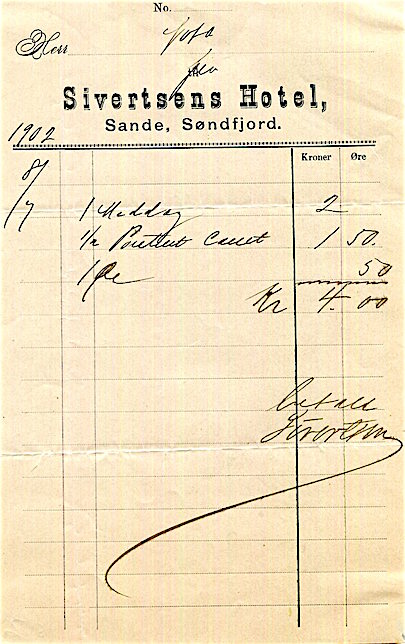 No.
Herr
fra
Sivertsens Hotel,
Sande, Søndfjord.
1902
Kroner Øre
8/7 1 Middag 2
1/2 Pontet Canet 1 50
1 Øl 50
Kr 4.00
betalt
Sivertsen